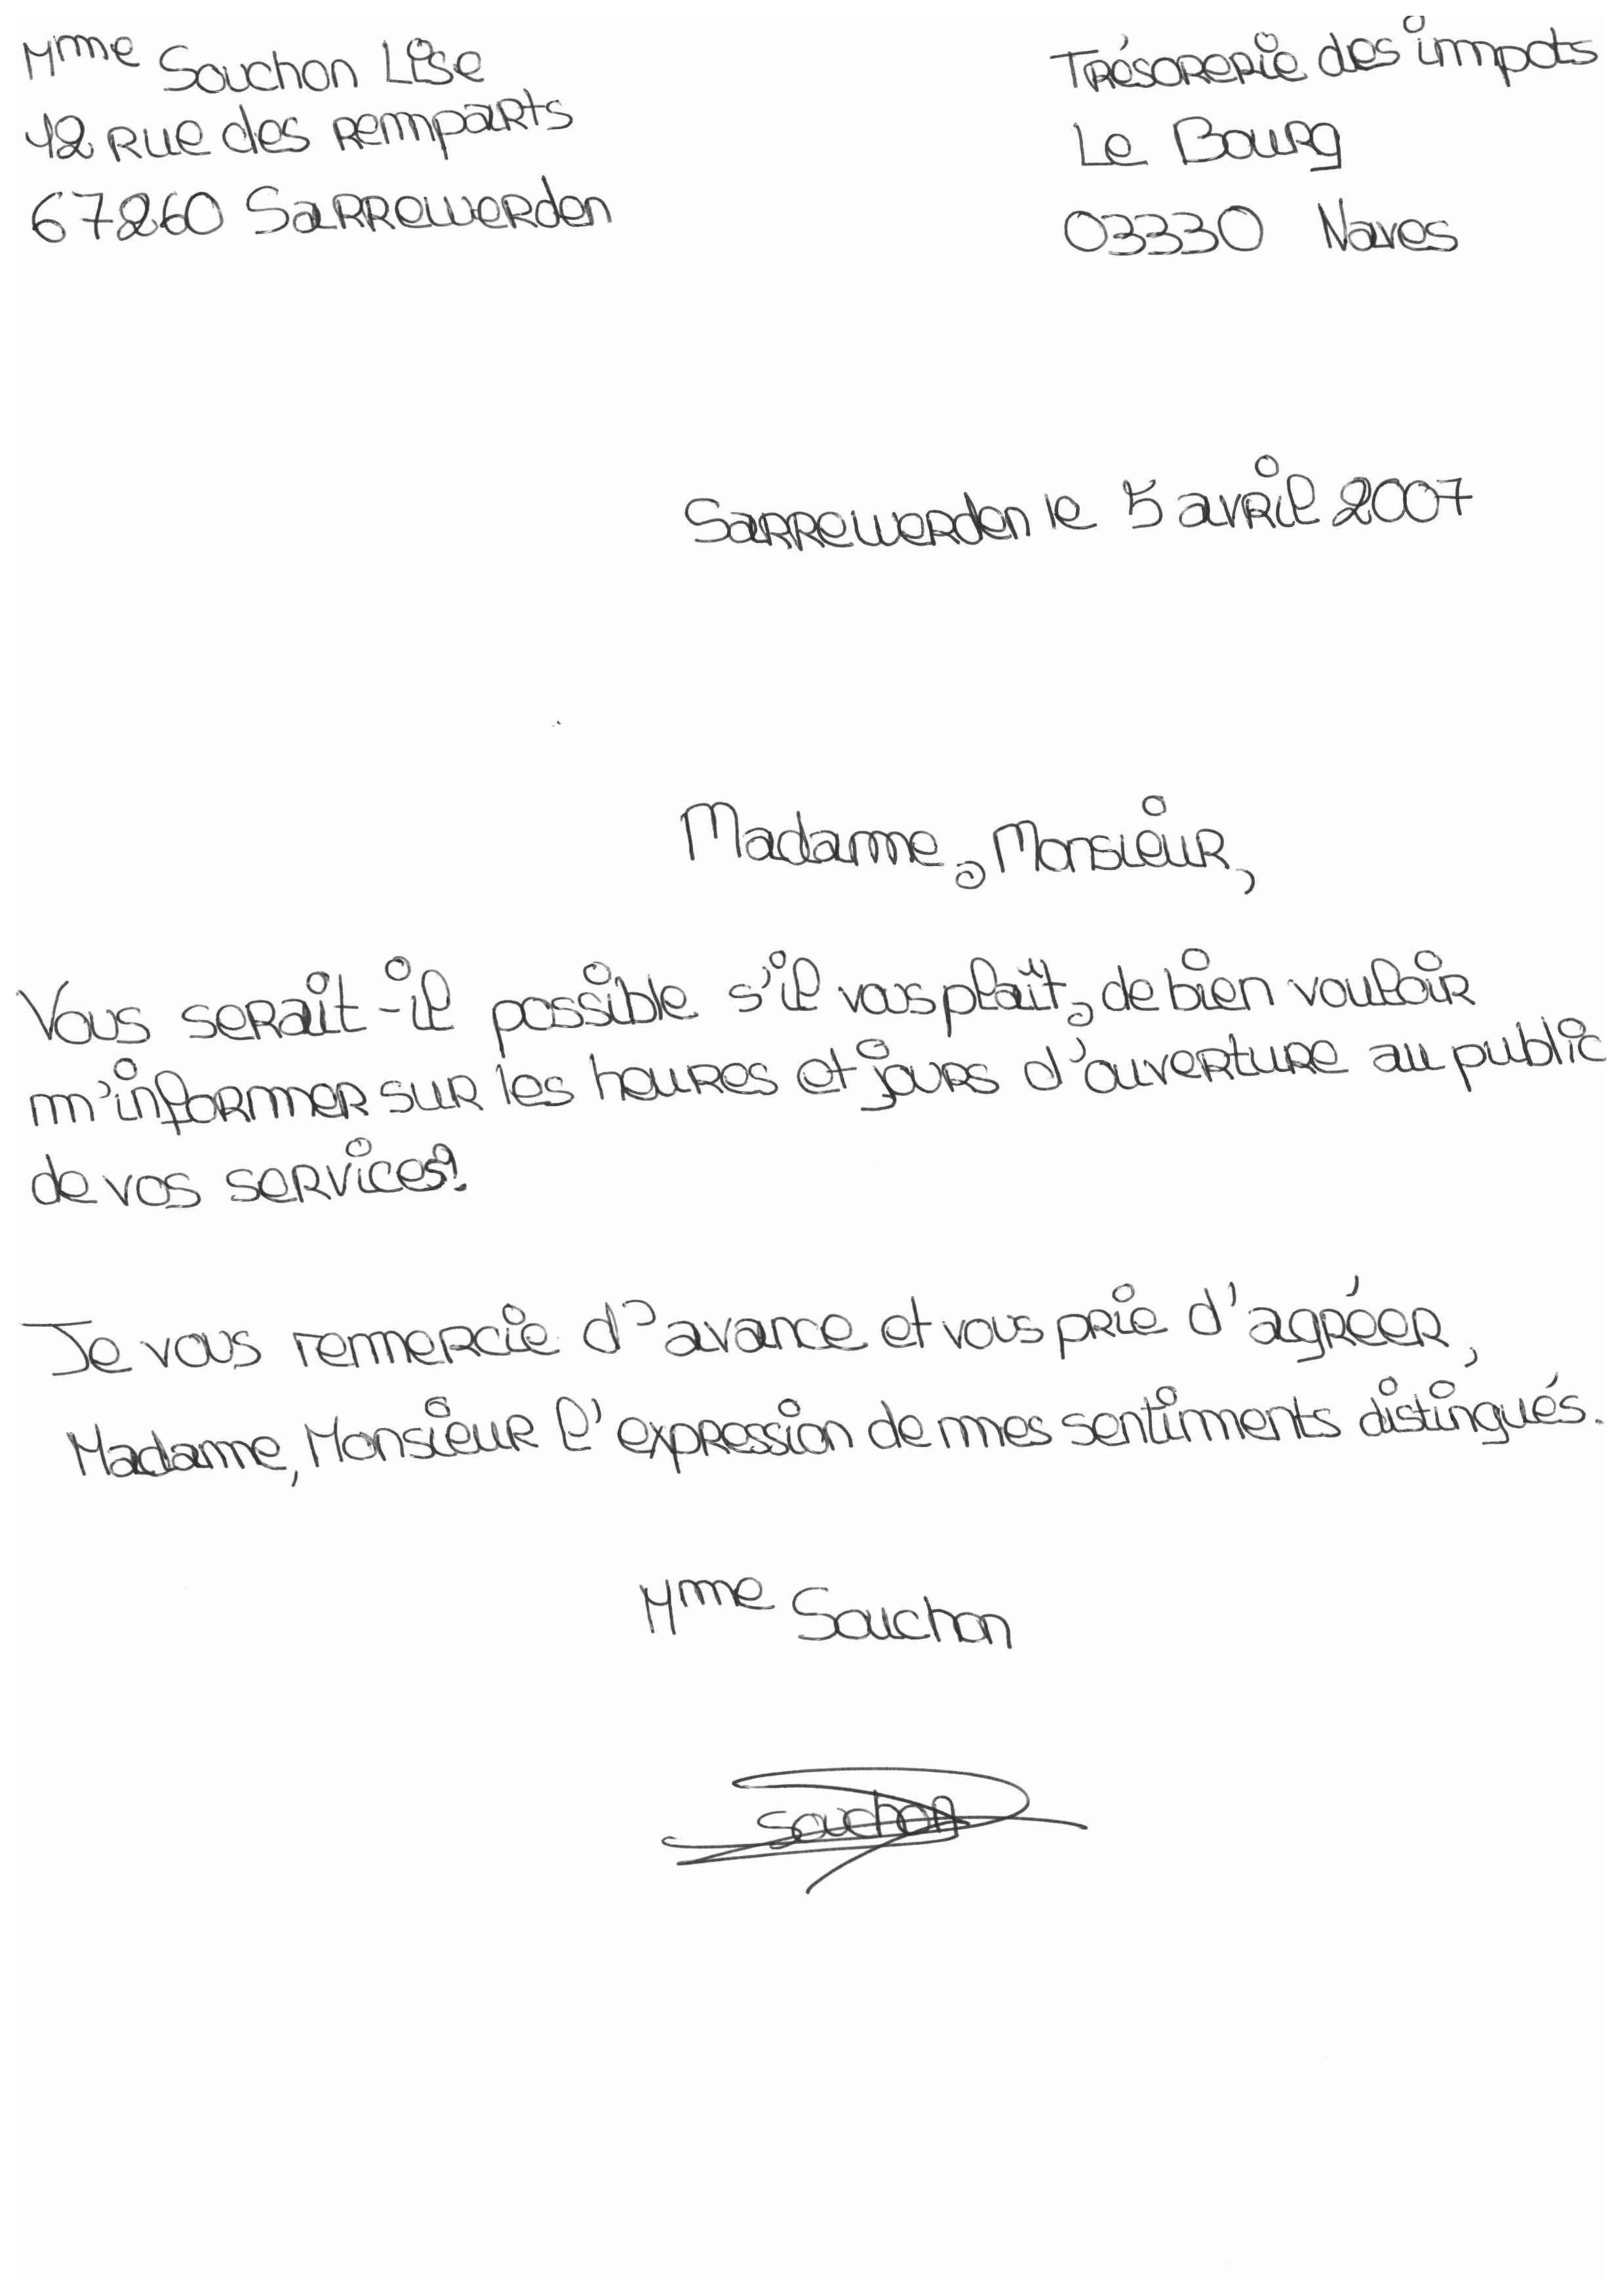 Mme Souchon Lise
12 rue des remparts
67260 Sarrewerden
Trésorerie des impots
Le Bourg
03330 Naves
Sarrewerden le 5 avril 2007
Madame, Monsieur,
Vous serait-il possible s'il vous plaît, de bien vouloir
m'informer sur les heures et jours d'ouverture au public
de vos services?
Je vous remercie d'avance et vous prie d'agréer,
Madame, Monsieur l'expression de mes sentiments distingués.
Mme Souchon
Souchon